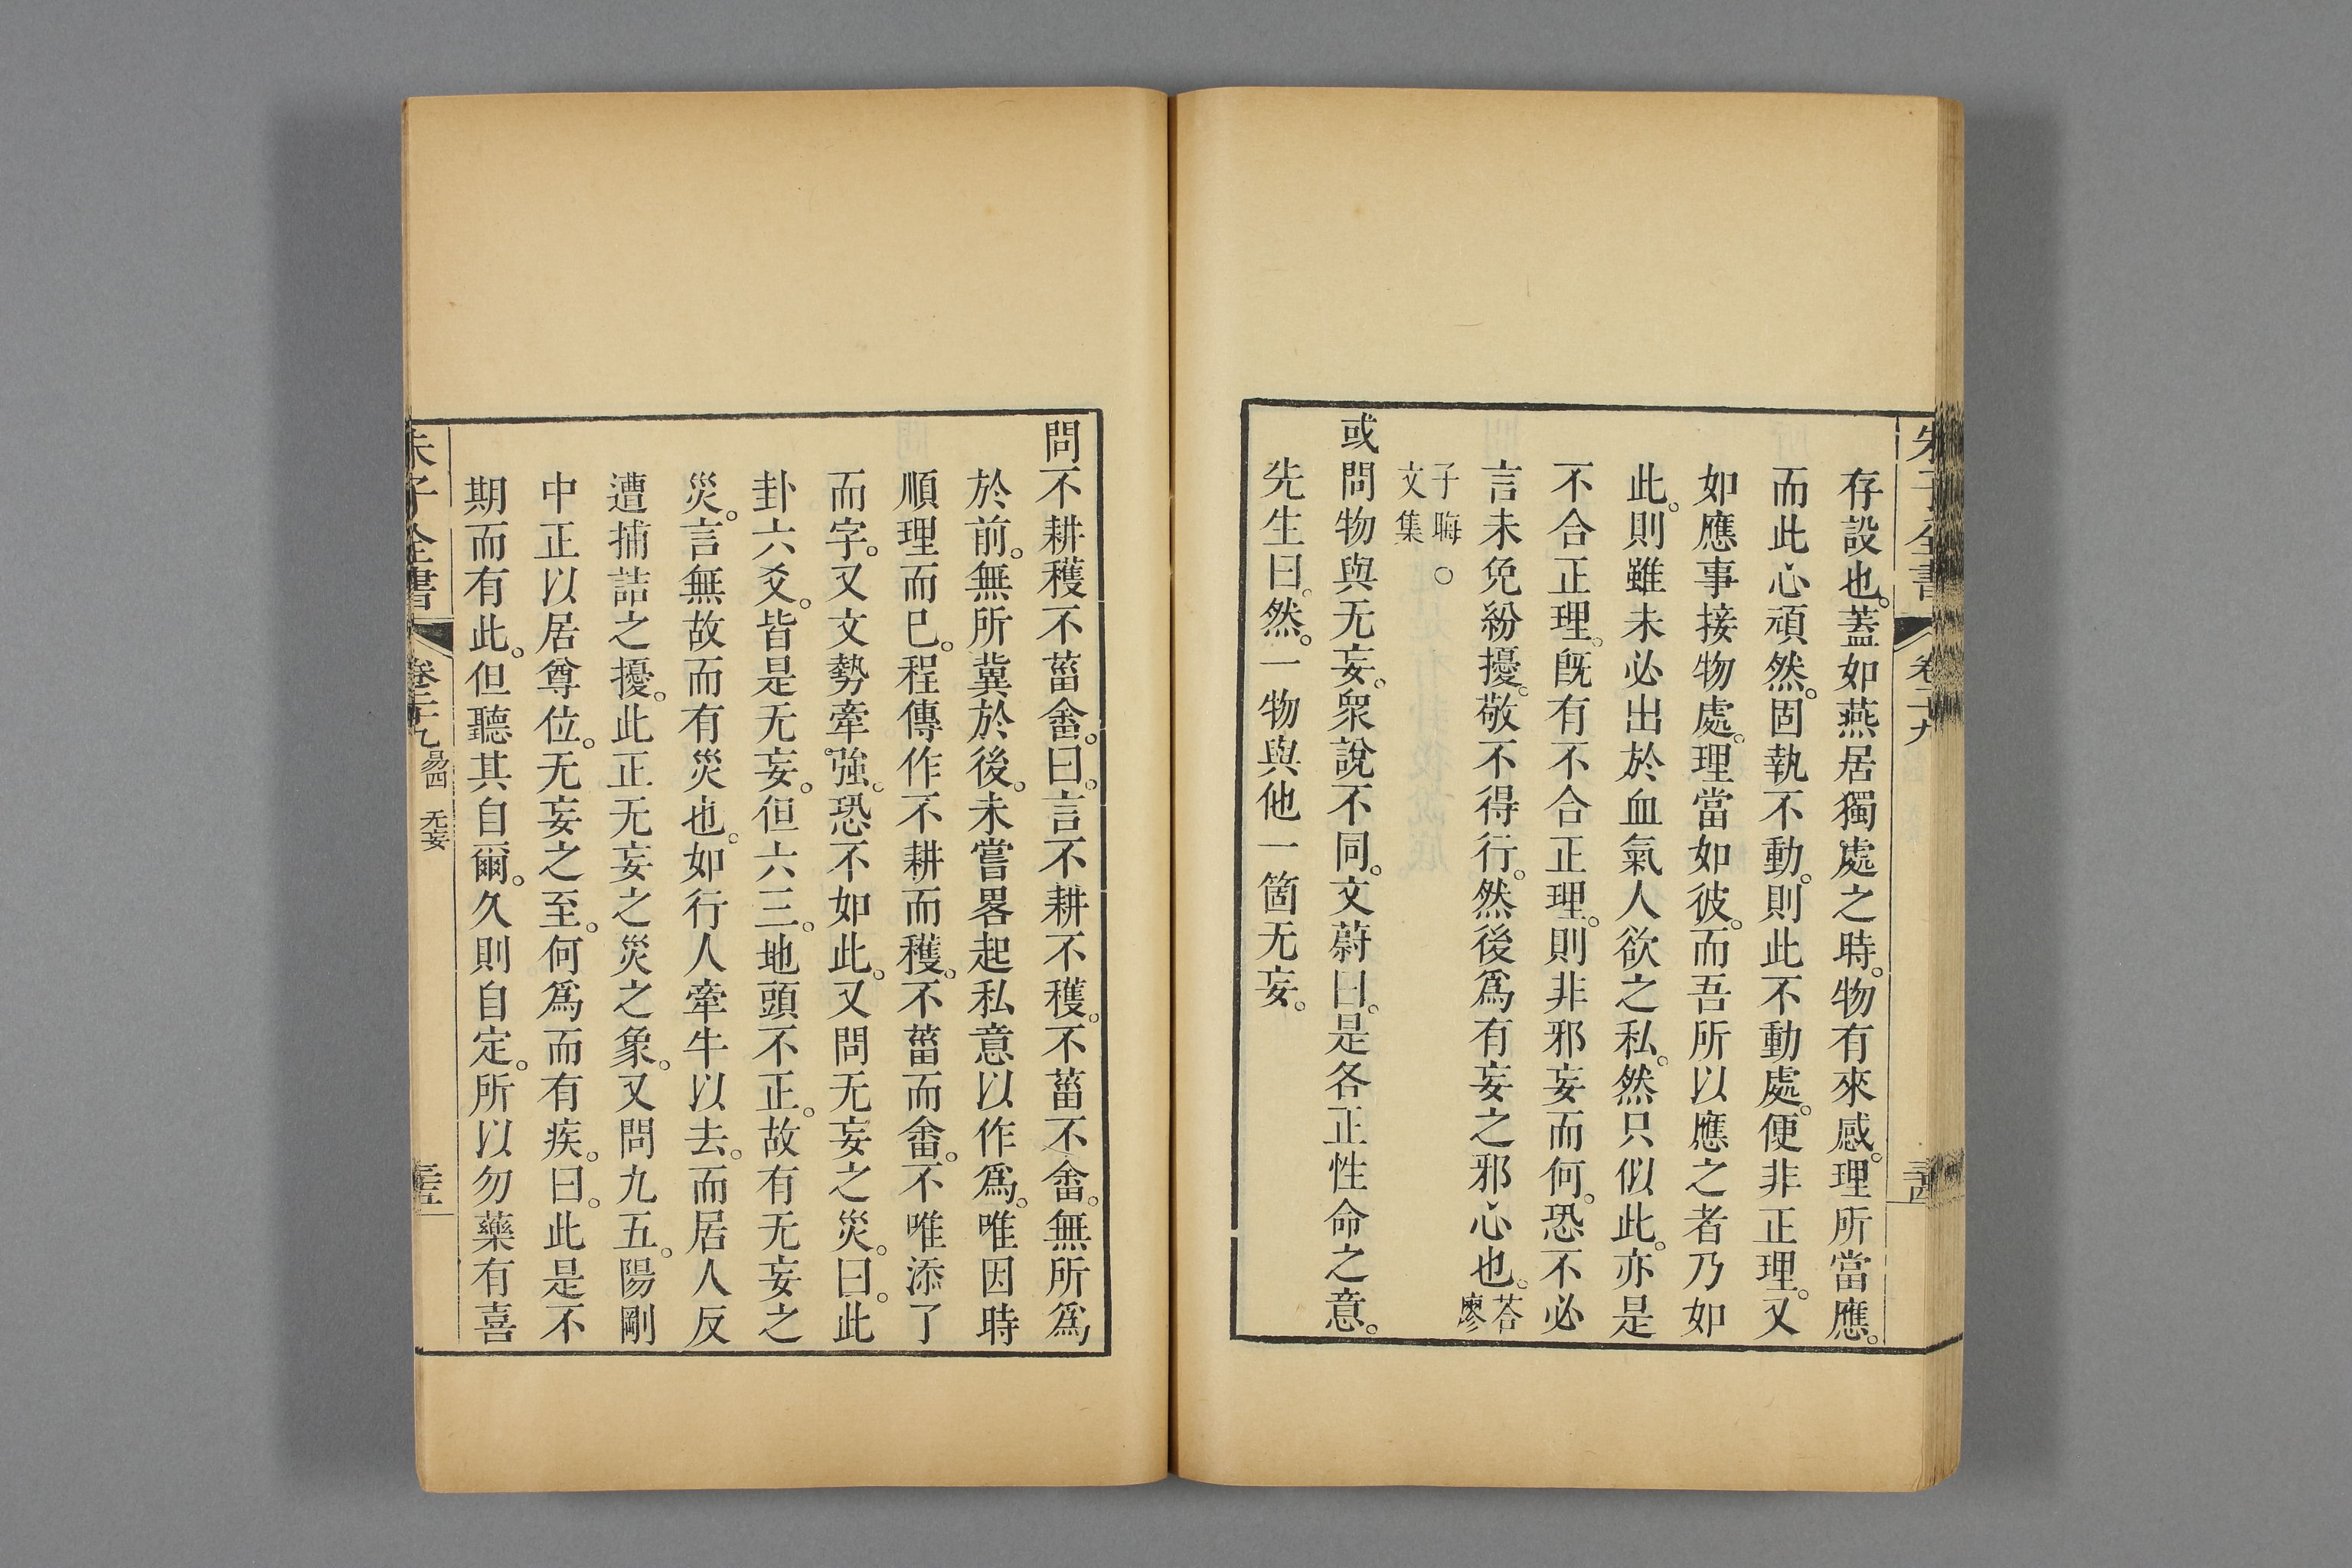 朱子全書
卷二十九
三十四
存設也。蓋如燕居獨處之時。物有來感。理所當應。
而此心頑然。固執不動。則此不動處。便非正理。又
如應事接物處。理當如彼。而吾所以應之者乃如
此。則雖未必出於血氣人欲之私。然只似此。亦是
不合正理。旣有不合正理。則非邪妄而何。恐不必
言未免紛擾。敬不得行。然後爲有妄之邪心也。荅廖
子晦○文集
或問物與无妄。衆說不同。文蔚曰。是各正性命之意。
先生曰。然。一物與他一箇无妄。
問不耕穫不菑畬。曰。言不耕不穫。不菑不畬。無所爲
於前。無所冀於後。未嘗畧起私意以作爲。唯因時
順理而已。程傳作不耕而穫。不菑而畬。不唯添了
而字。又文勢牽強。恐不如此。又問无妄之災。曰。此
卦六爻。皆是无妄。但六三。地頭不正。故有无妄之
災。言無故而有災也。如行人牽牛以去。而居人反
遭捕詰之擾。此正无妄之災之象。又問九五。陽剛
中正以居尊位。无妄之至。何爲而有疾。曰。此是不
期而有此。但聽其自爾。久則自定。所以勿藥有喜
朱子全書
卷二十九
易四 无妄
三十五